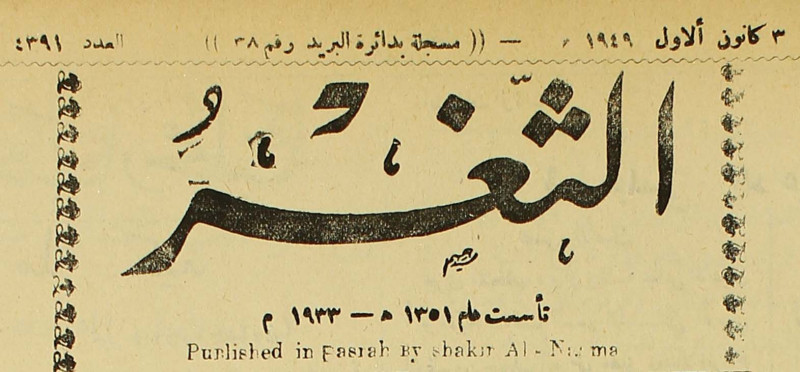 ٣ كانون ألاول ١٩٤٩ — (( مسجلة بدائرة البريد رقم ٣٨ )) العدد ٤٣٩١
الثَّغْرُ
تأسست عام ١٣٥١ ه — ١٩٣٣ م
Punlished in Fasrah By shakir Al -